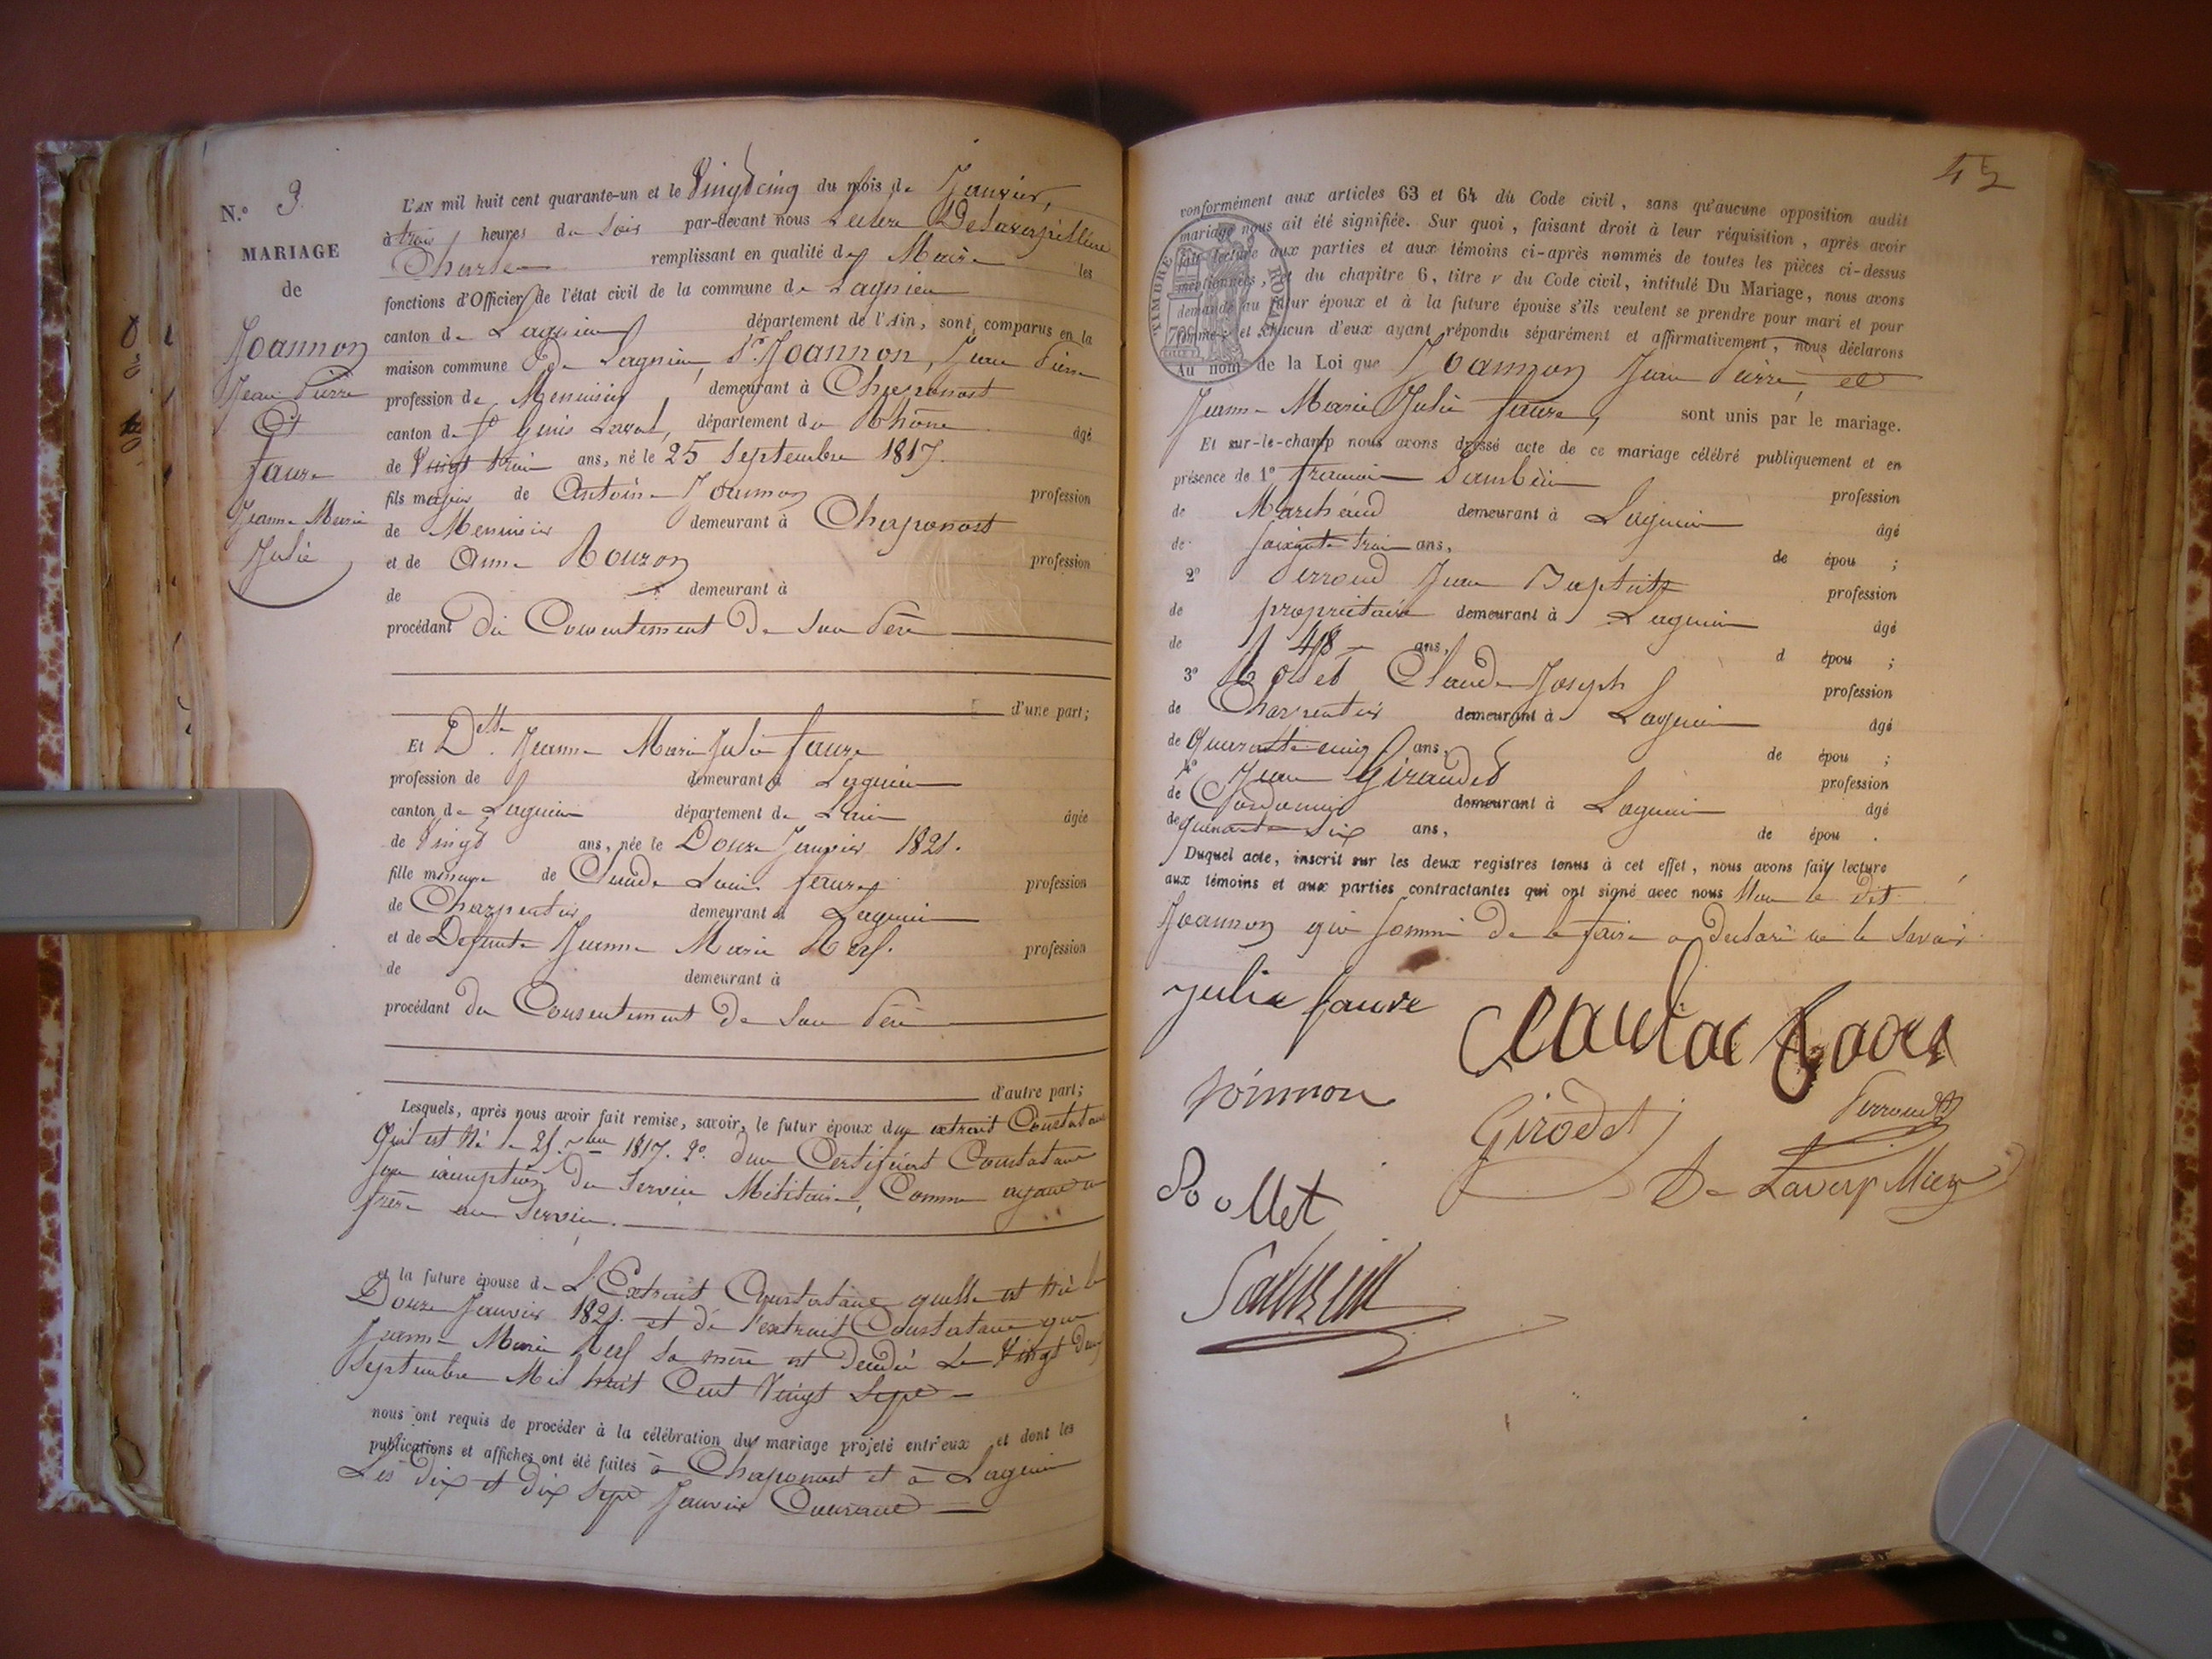 N.° 3
MARIAGE
de
Joannon
Jean Pierre
Et
faure
Jeanne Marie
Julie
L'AN mil huit cent quarante-un et le Vingt cinq du mois de Janvier,
à trois heures du soir par-devant nous
Charles remplissant en qualité de Maire les
fonctions d'Officier de l'état civil de la commune de Lagnieu
canton de Lagnieu département de l'Ain, sont comparus en la
maison commune de Lagnieu, Sr. Joannon, Jean Pierre
profession de Menuisier demeurant à Chaponost
canton de St genis Laval, département du Rhône âgé
de Vingt trois ans, né le 25 Septembre 1817.
fils majeur de Antoine Joannon profession
de Menuisier demeurant à Chaponost
et de Anne Bouzon profession
de demeurant à
procédant du Consentement de son Père
d'une part;
Et Dlle. Jeanne Marie Julie faure
profession de demeurant à Lagnieu
canton de Lagnieu département de Lain âgée
de Vingt ans, née le Douze Janvier 1821.
fille mineure de Claude Louis faure profession
de Charpentier demeurant à Lagnieu
et de Defunte Jeanne Marie profession
de demeurant à
procédant du Consentement de son Père
d'autre part;
Lesquels, après nous avoir fait remise, savoir, le futur époux d'un extrait Constatant
Qu'il est Né le 25. 7bre 1817. 2°. d'un Certificat Constatant
son exemption du Service Militaire, Comme ayant un
frère au Service.
et la future épouse de L'Extrait Constatant quelle est Née le
Douze Janvier 1821. et de l'extrait Constatant que
Jeanne Marie sa mère est décédée Le Vingt deux
Septembre Mil huit Cent Vingt Sept
nous ont requis de procéder à la célébration du mariage projeté entr'eux et dont les
publications et affiches ont été faites à Chaponost et à Lagnieu
Les dix et dix Sept Janvier Courant
45
conformément aux articles 63 et 64 du Code civil, sans qu'aucune opposition audit
mariage nous ait été signifiée. Sur quoi, faisant droit à leur réquisition, après avoir
fait lecture aux parties et aux témoins ci-après nommés de toutes les pièces ci-dessus
mentionnées, et du chapitre 6, titre v du Code civil, intitulé Du Mariage, nous avons
demandé au futur époux et à la future épouse s'ils veulent se prendre pour mari et pour
femme; et chacun d'eux ayant répondu séparément et affirmativement, nous déclarons
Au nom de la Loi que Joannon Jean Pierre, et
Jeanne Marie Julie faure, sont unis par le mariage.
TIMBRE ROYAL
Et sur-le-champ nous avons dressé acte de ce mariage célébré publiquement et en
présence de 1° francois Sambuin profession
de Marchand demeurant à Lagnieu âgé
de soixante trois ans, de épou ;
2° Perroud Jean Baptiste profession
de propriétaire demeurant à Lagnieu âgé
de 48 ans, d épou ;
3° Rollet Claude Joseph profession
de Charpentier demeurant à Lagnieu âgé
de Quarante cinq ans, de épou ;
4° Jean Giraudet profession
de Cordonnier demeurant à Lagnieu âgé
de quarante six ans, de épou .
Duquel acte, inscrit sur les deux registres tenus à cet effet, nous avons fait lecture
aux témoins et aux parties contractantes qui ont signé avec nous Non le dit
Joannon qui sommé de le faire a declaré ne le Savoir
julie faure
Joannon
Girodet
Perroud
Rollet